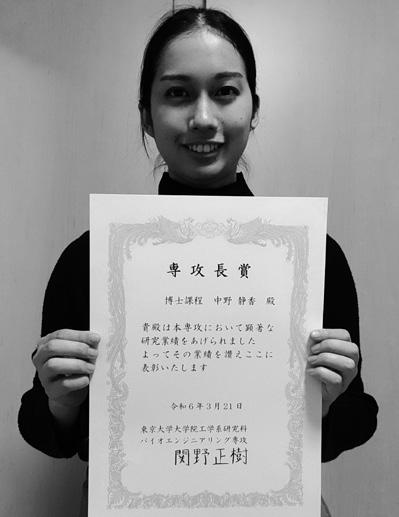 専攻長賞
博士課程 中野 静香 殿
貴殿は本専攻において顕著な
研究業績をあげられました
よってその業績を讃えここに
表彰いたします
令和6年3月21日
東京大学大学院工学系研究科
バイオエンジニアリング専攻
関野正樹